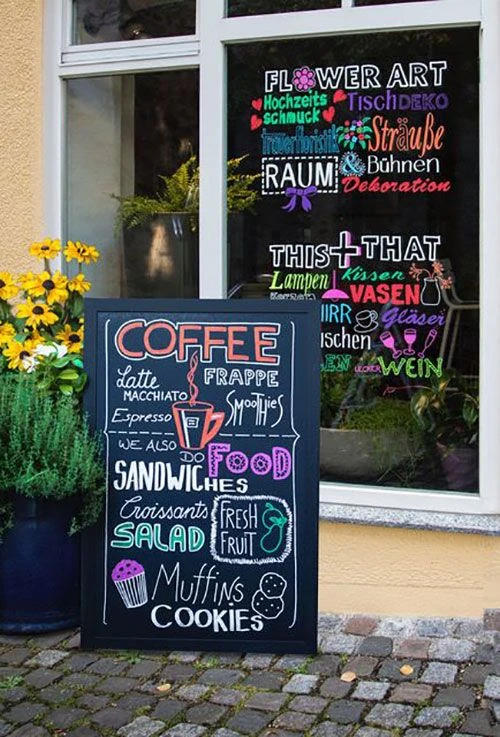 FLOWER ART
Hochzeits
schmuck
TischDEKO
trauerfloristik
Sträuße
RAUM
& Bühnen
Dekoration
THIS + THAT
Lampen Kissen
VASEN
IRR Gläser
schen
EN LECKER WEIN
COFFEE
Latte
MACCHIATO
FRAPPE
Espresso
Smoothies
WE ALSO
DO
FOOD
SANDWICHES
Croissants
SALAD
FRESH
FRUIT
Muffins
COOKIES